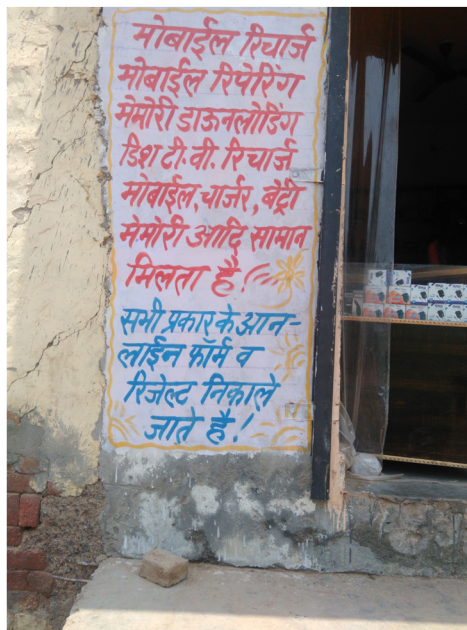 मोबाईल रिचार्ज
मोबाईल रिपेरिंग
मेमोरी डाऊनलोडिंग
डिश टी.वी. रिचार्ज
मोबाईल, चार्जर, बेट्री
मेमोरी आदि सामान
मिलता है
सभी प्रकार के आन-
लाईन फॉर्म व
रिजेल्ट निकाले
जाते है!